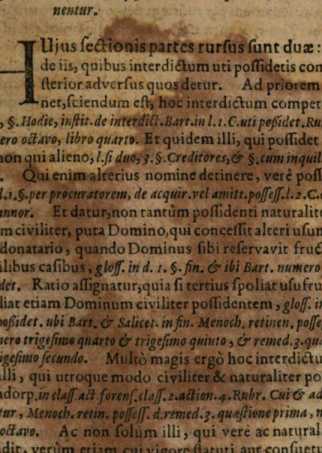 nentur.
HUjus sectionis partes rursus sunt duæ:
de iis, quibus interdictum uti possidetis com
sterior adversus quos detur. Ad priorem
net, sciendum est, hoc interdictum compet
, §. Hodie, instit. de interdict. Bart. in l. 1. C. uti possidet. Ru
ero octavo, libro quarto. Et quidem illi, qui possidet
non qui alieno, l. si duo, 3. §. Creditores, & §. cum inquil
. Qui enim alterius nomine detinere, verè poss
l. 1. §. per procuratorem, de acquir. vel amitt. possess. l. 2. C.
annor. Et datur, non tantùm possidenti naturalite
m civiliter, puta Domino, qui concessit alteri usum
donatario, quando Dominus sibi reservavit fruc
ilibus casibus, gloss. in d. l. §. fin. & ibi Bart. numero
det. Ratio assignatur, quia si tertius spoliat usufru
liat etiam Dominum civiliter possidentem, gloss. in
possidet. ubi Bart. & Salicet. in fin. Menoch. retinen. posse
nero trigesimo quarto & trigesimo quinto, & remed. 3. qu
igesimo secundo. Multò magis ergò hoc interdictu
illi, qui utroque modo civiliter & naturaliter po
adorp, in class. act. forens. class. 2. action. 4. Rubr. Cui & ad
tur, Menoch. retin. possess. d. remed. 3. quæstione prima, n
octavo. Ac non solum illi, qui verè ac natural
dit, verùm etiam cui vigore statuti aut consuetu